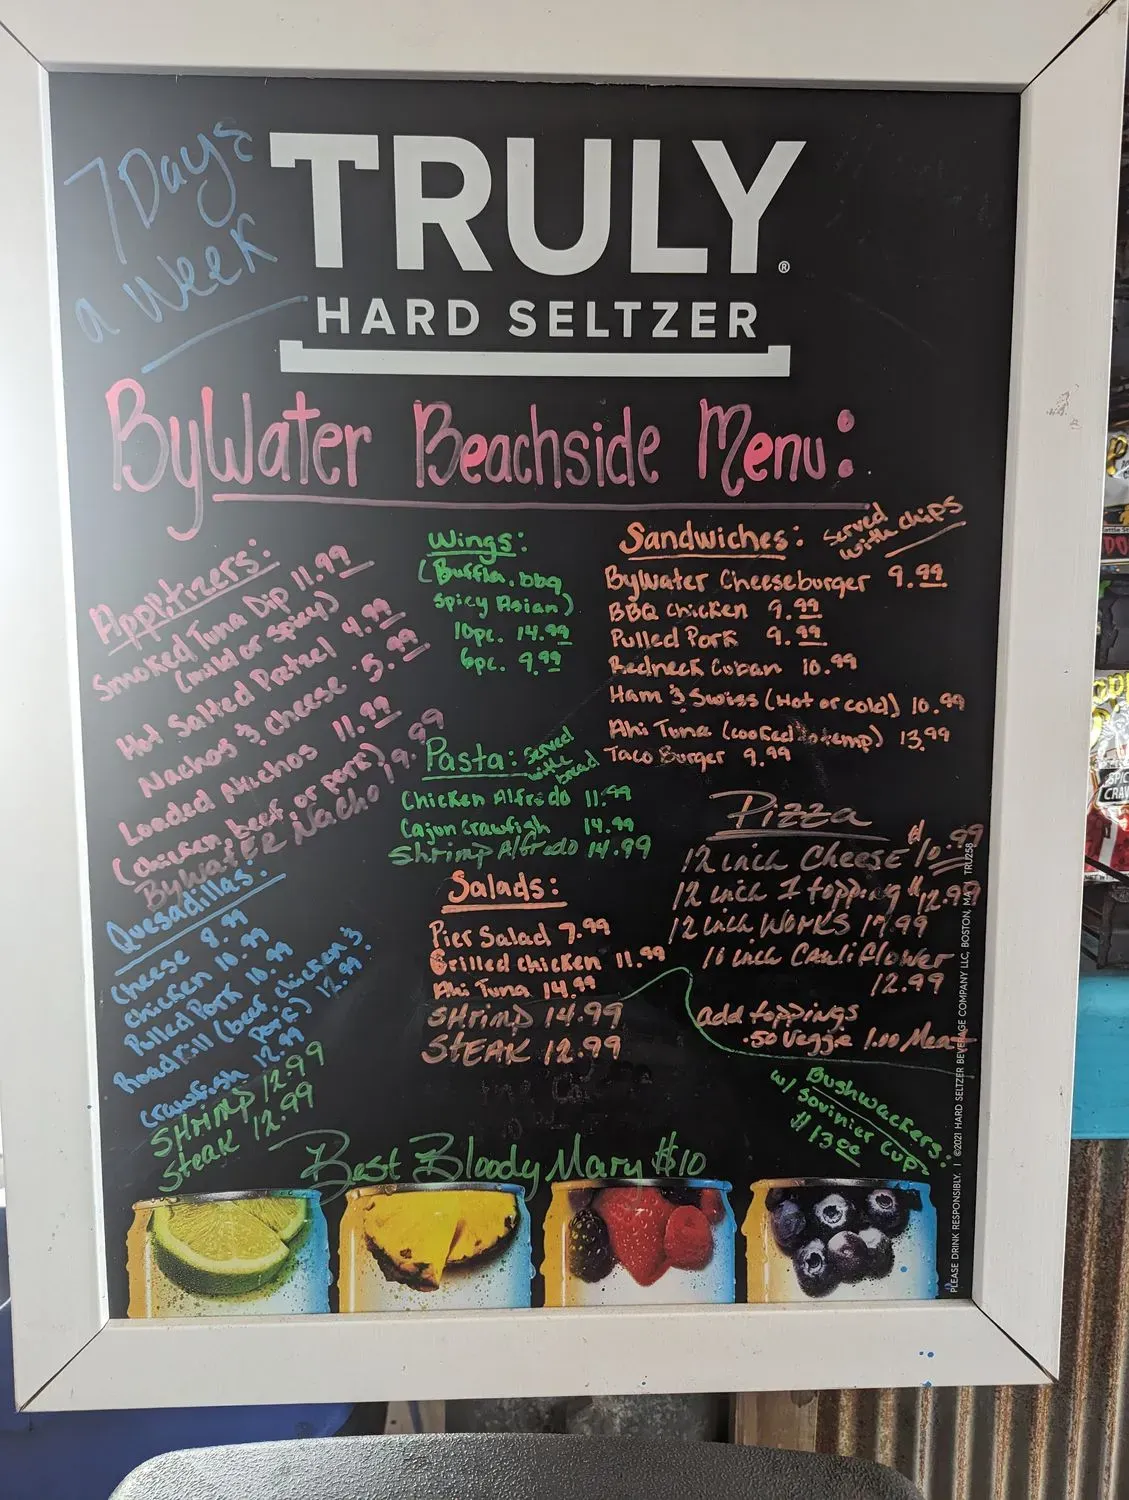 7 Days
a Week
TRULY®
HARD SELTZER
ByWater Beachside Menu:
Appitizers:
Smoked Tuna Dip 11.99
(mild or spicy)
Hot Salted Pretzel 4.99
Nachos & cheese .5.99
Loaded Nachos 11.99
(chicken, beef or pork)
BywatER Nacho 19.99
Quesadillas:
cheese 8.99
chicken 10.99
Pulled Pork 10.99
Roadkill (beef, chicken &
pork) 12.99
crawfish 12.99
SHrimp 12.99
Steak 12.99
Wings:
(Buffla, bbq
spicy Asian)
10pc. 14.99
6pc. 9.99
Pasta: served
with bread
Chicken Alfredo 11.99
Cajun Crawfish 14.99
Shrimp Alfredo 14.99
Salads:
Pier Salad 7.99
Grilled chicken 11.99
Ahi Tuna 14.99
SHrimp 14.99
STEAK 12.99
Sandwiches: served
with chips
ByWater Cheeseburger 9.99
BBQ Chicken 9.99
Pulled Pork 9.99
Redneck Cuban 10.99
Ham & Swiss (Hot or cold) 10.99
Ahi Tuna (cooked to temp) 13.99
Taco Burger 9.99
Pizza
12 inch Cheese $10.99
12 inch 1 topping $12.99
12 inch Works 17.99
10 inch Cauliflower
12.99
add toppings
.50 Veggie 1.00 Meat
Bushwackers:
w/ Sovinier Cup
$13.00
Best Bloody Mary $10
PLEASE DRINK RESPONSIBLY. | ©2021 HARD SELTZER BEVERAGE COMPANY LLC, BOSTON, MA | TRU258